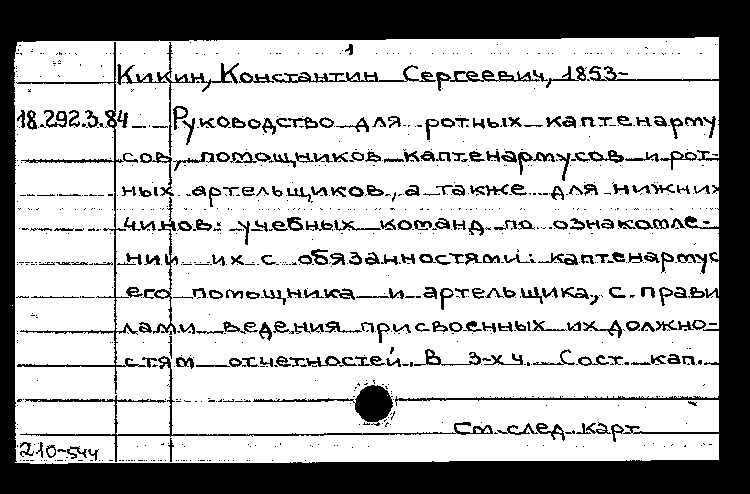 1
Кикин, Константин Сергеевич, 1853-
18.292.3.84 Руководство для ротных каптенарму
сов, помощников каптенармусов и рот-
ных артельщиков, а также для нижних
чинов: учебных команд по ознакомле-
нии их с обязанностями: каптенармус
его помощника и артельщика, с прави
лами ведения присвоенных их должно-
стям отчетностей. В 3-х ч. Сост. кап.
См. след. карт.
210-544